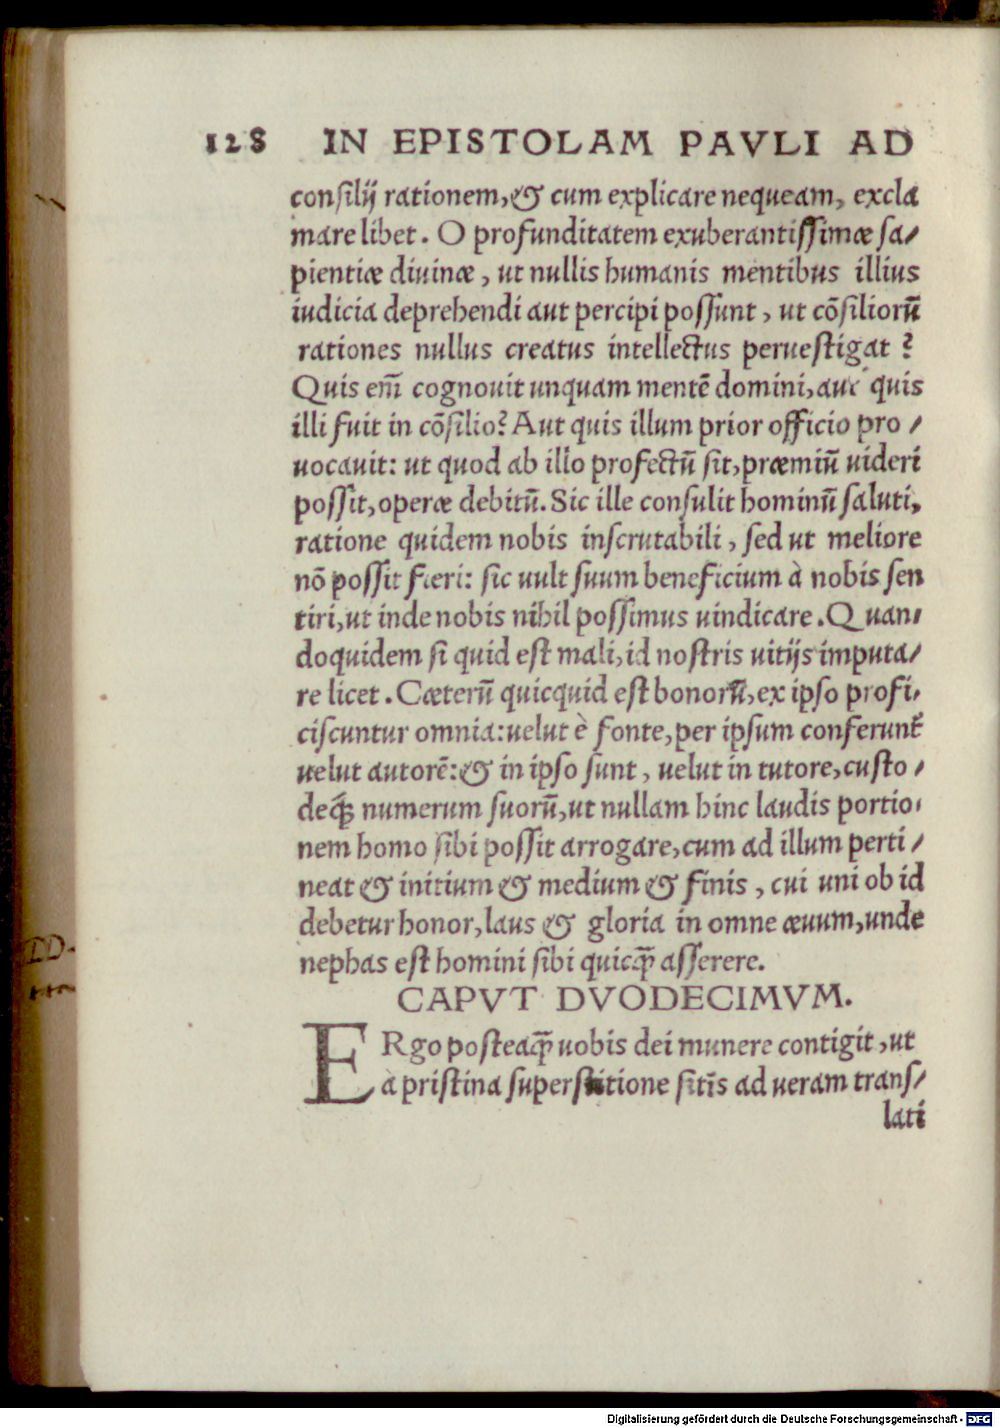 128 IN EPISTOLAM PAVLI AD
consilij rationem, & cum explicare nequeam, excla
mare libet. O profunditatem exuberantissimæ sa-
pientiæ diuinæ, ut nullis humanis mentibus illius
iudicia deprehendi aut percipi possunt, ut cōsiliorū
rationes nullus creatus intellectus peruestigat?
Quis em̄ cognouit unquam mentē domini, aut quis
illi fuit in cōsilio? Aut quis illum prior officio pro-
uocauit: ut quod ab illo profectū sit, præmiū uideri
possit, operæ debitū. Sic ille consulit hominū saluti,
ratione quidem nobis inscrutabili, sed ut meliore
nō possit fieri: sic uult suum beneficium à nobis sen
tiri, ut inde nobis nihil possimus uindicare. Quan-
doquidem si quid est mali, id nostris uitijs imputa-
re licet. Cæterū quicquid est bonorū, ex ipso profi-
ciscuntur omnia: uelut è fonte, per ipsum conferunt᷑
uelut autorē: & in ipso sunt, uelut in tutore, custo-
deq́; numerum suorū, ut nullam hinc laudis portio-
nem homo sibi possit arrogare, cum ad illum perti-
neat & initium & medium & finis, cui uni ob id
debetur honor, laus & gloria in omne æuum, unde
nephas est homini sibi quicq̄ asserere.
CAPVT DVODECIMVM.
ERgo posteaq̄ uobis dei munere contigit, ut
à pristina superstitione sitis ad ueram trans-
lati
DD-
Digitalisierung gefördert durch die Deutsche Forschungsgemeinschaft - DFG